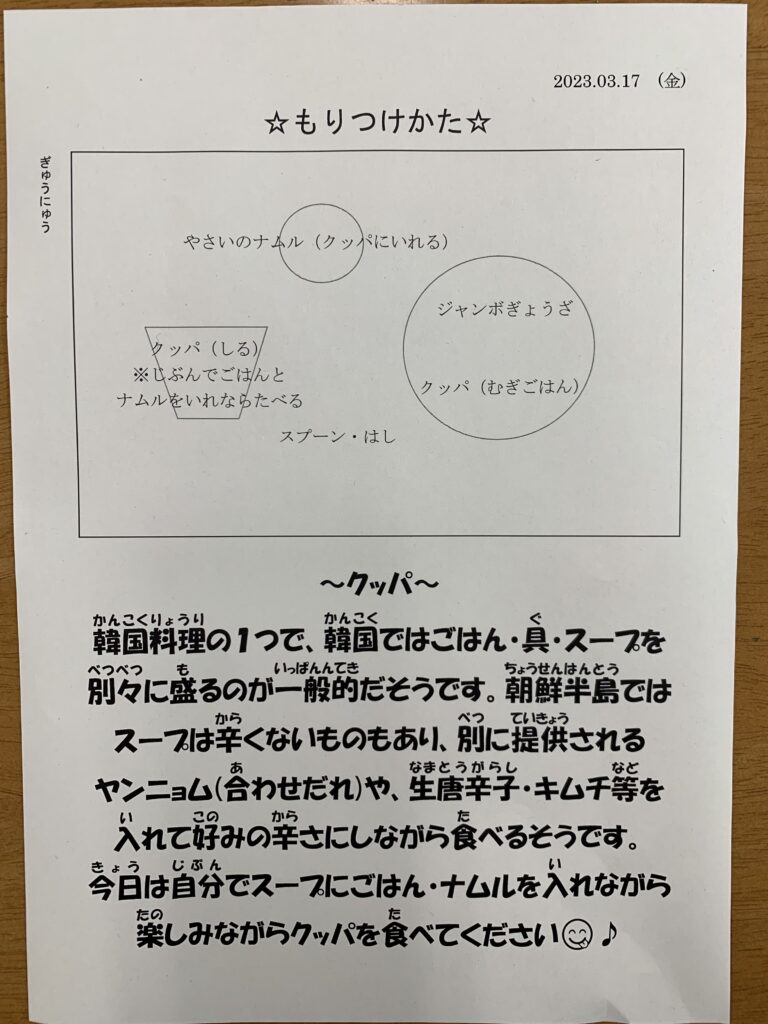 2023.03.17 (金)
☆もりつけかた☆
ぎゅうにゅう
やさいのナムル（クッパにいれる）
ジャンボぎょうざ
クッパ（むぎごはん）
クッパ（しる）
※じぶんでごはんと
ナムルをいれならたべる
スプーン・はし
～クッパ～
かんこくりょうり かんこく ぐ
韓国料理の1つで、韓国ではごはん・具・スープを
べつべつ も いっぱんんてき ちょうせんはんとう
別々に盛るのが一般的だそうです。朝鮮半島では
から べつ ていきょう
スープは辛くないものもあり、別に提供される
あ なまとうがらし など
ヤンニョム(合わせだれ)や、生唐辛子・キムチ等を
い この から た
入れて好みの辛さにしながら食べるそうです。
きょう じぶん い
今日は自分でスープにごはん・ナムルを入れながら
たの た
楽しみながらクッパを食べてください😋♪